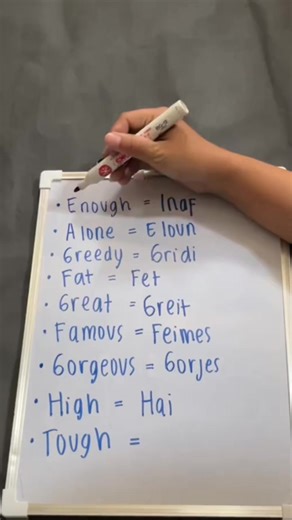 • Enough = Inaf
• Alone = Eloun
• Greedy = Gridi
• Fat = Fet
• Great = Greit
• Famous = Feimes
• Gorgeous = Gorjes
• High = Hai
• Tough =